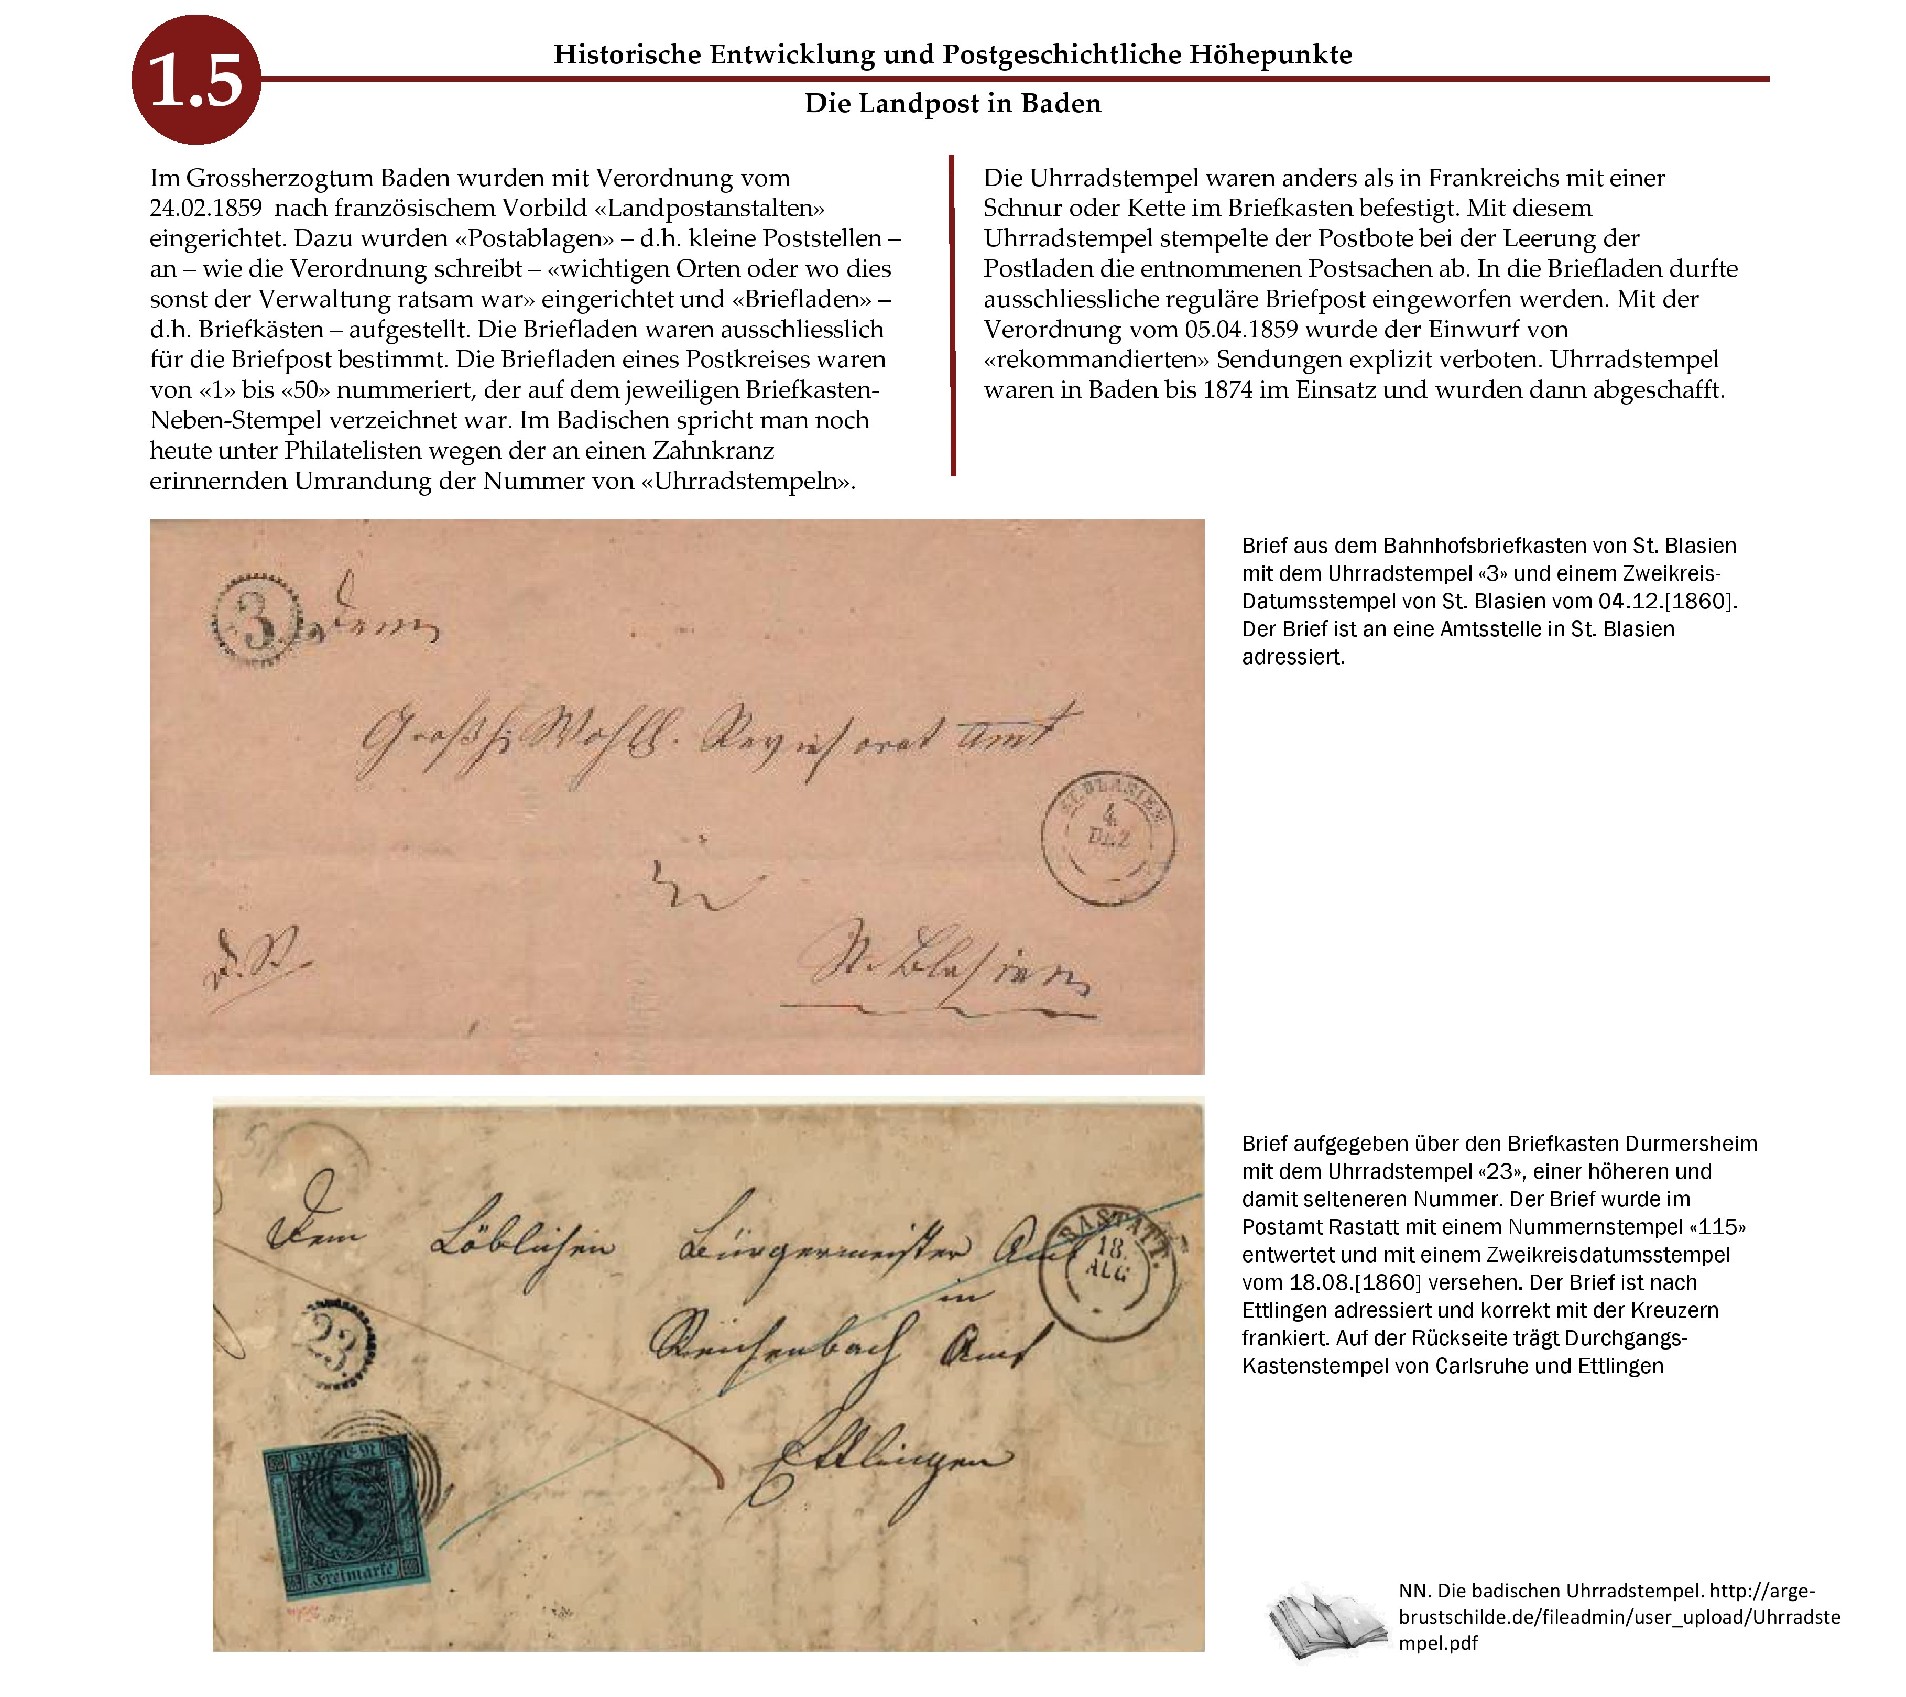 1.5
Historische Entwicklung und Postgeschichtliche Höhepunkte
Die Landpost in Baden
Im Grossherzogtum Baden wurden mit Verordnung vom
24.02.1859 nach französischem Vorbild «Landpostanstalten»
eingerichtet. Dazu wurden «Postablagen» – d.h. kleine Poststellen –
an – wie die Verordnung schreibt – «wichtigen Orten oder wo dies
sonst der Verwaltung ratsam war» eingerichtet und «Briefladen» –
d.h. Briefkästen – aufgestellt. Die Briefladen waren ausschliesslich
für die Briefpost bestimmt. Die Briefladen eines Postkreises waren
von «1» bis «50» nummeriert, der auf dem jeweiligen Briefkasten-
Neben-Stempel verzeichnet war. Im Badischen spricht man noch
heute unter Philatelisten wegen der an einen Zahnkranz
erinnernden Umrandung der Nummer von «Uhrradstempeln».
Die Uhrradstempel waren anders als in Frankreichs mit einer
Schnur oder Kette im Briefkasten befestigt. Mit diesem
Uhrradstempel stempelte der Postbote bei der Leerung der
Postladen die entnommenen Postsachen ab. In die Briefladen durfte
ausschliessliche reguläre Briefpost eingeworfen werden. Mit der
Verordnung vom 05.04.1859 wurde der Einwurf von
«rekommandierten» Sendungen explizit verboten. Uhrradstempel
waren in Baden bis 1874 im Einsatz und wurden dann abgeschafft.
3
Dem
Amt
ST. BLASIEN
4
DEZ
in
St. Blasien
Brief aus dem Bahnhofsbriefkasten von St. Blasien
mit dem Uhrradstempel «3» und einem Zweikreis-
Datumsstempel von St. Blasien vom 04.12.[1860].
Der Brief ist an eine Amtsstelle in St. Blasien
adressiert.
Dem Löblichen Bürgermeister Amt
RASTATT.
18.
AUG
in
Reichenbach Amt
23
Ettlingen
Freimarke
Brief aufgegeben über den Briefkasten Durmersheim
mit dem Uhrradstempel «23», einer höheren und
damit selteneren Nummer. Der Brief wurde im
Postamt Rastatt mit einem Nummernstempel «115»
entwertet und mit einem Zweikreisdatumsstempel
vom 18.08.[1860] versehen. Der Brief ist nach
Ettlingen adressiert und korrekt mit der Kreuzern
frankiert. Auf der Rückseite trägt Durchgangs-
Kastenstempel von Carlsruhe und Ettlingen
NN. Die badischen Uhrradstempel. http://arge-
brustschilde.de/fileadmin/user_upload/Uhrradste
mpel.pdf